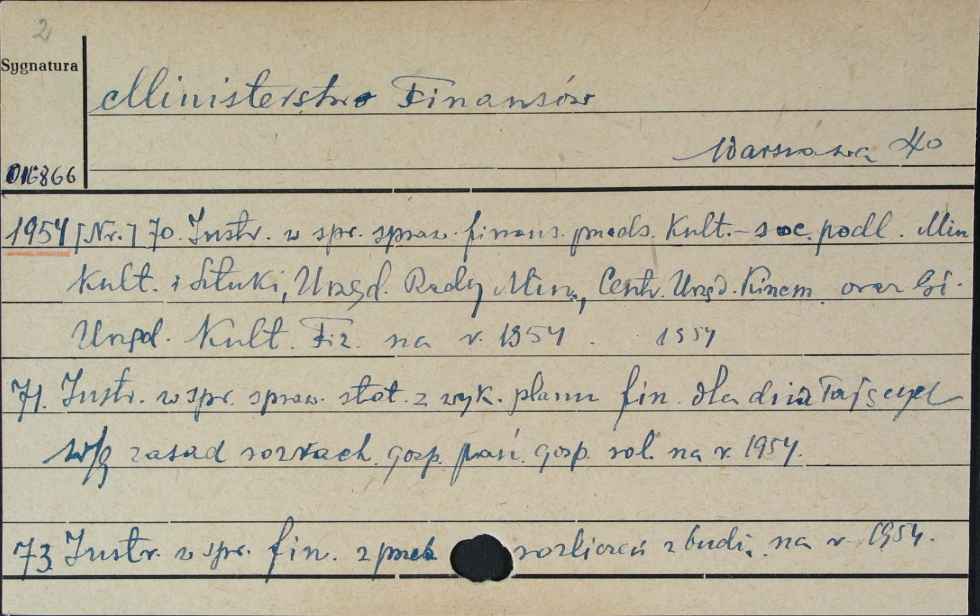 2
Sygnatura
Ministerstwo Finansów
Warszawa 4o
016866
1954 [Nr.] 70. Instr. w spr. spraw. finans. przeds. Kult.-soc. podl. Min
Kult. i Sztuki, Urzęd. Rady Min., Centr. Urzęd. Kinem. oraz Gł.
Urzęd. Kult. Fiz. na r. 1954. 1954
71. Instr. w spr. spraw. stat. z wyk. planu fin. dla działających
w/g zasad rozrach. gosp. gosp. rol. na r. 1954.
73. Instr. w spr. fin. rozliczeń z budż. na r. 1954.